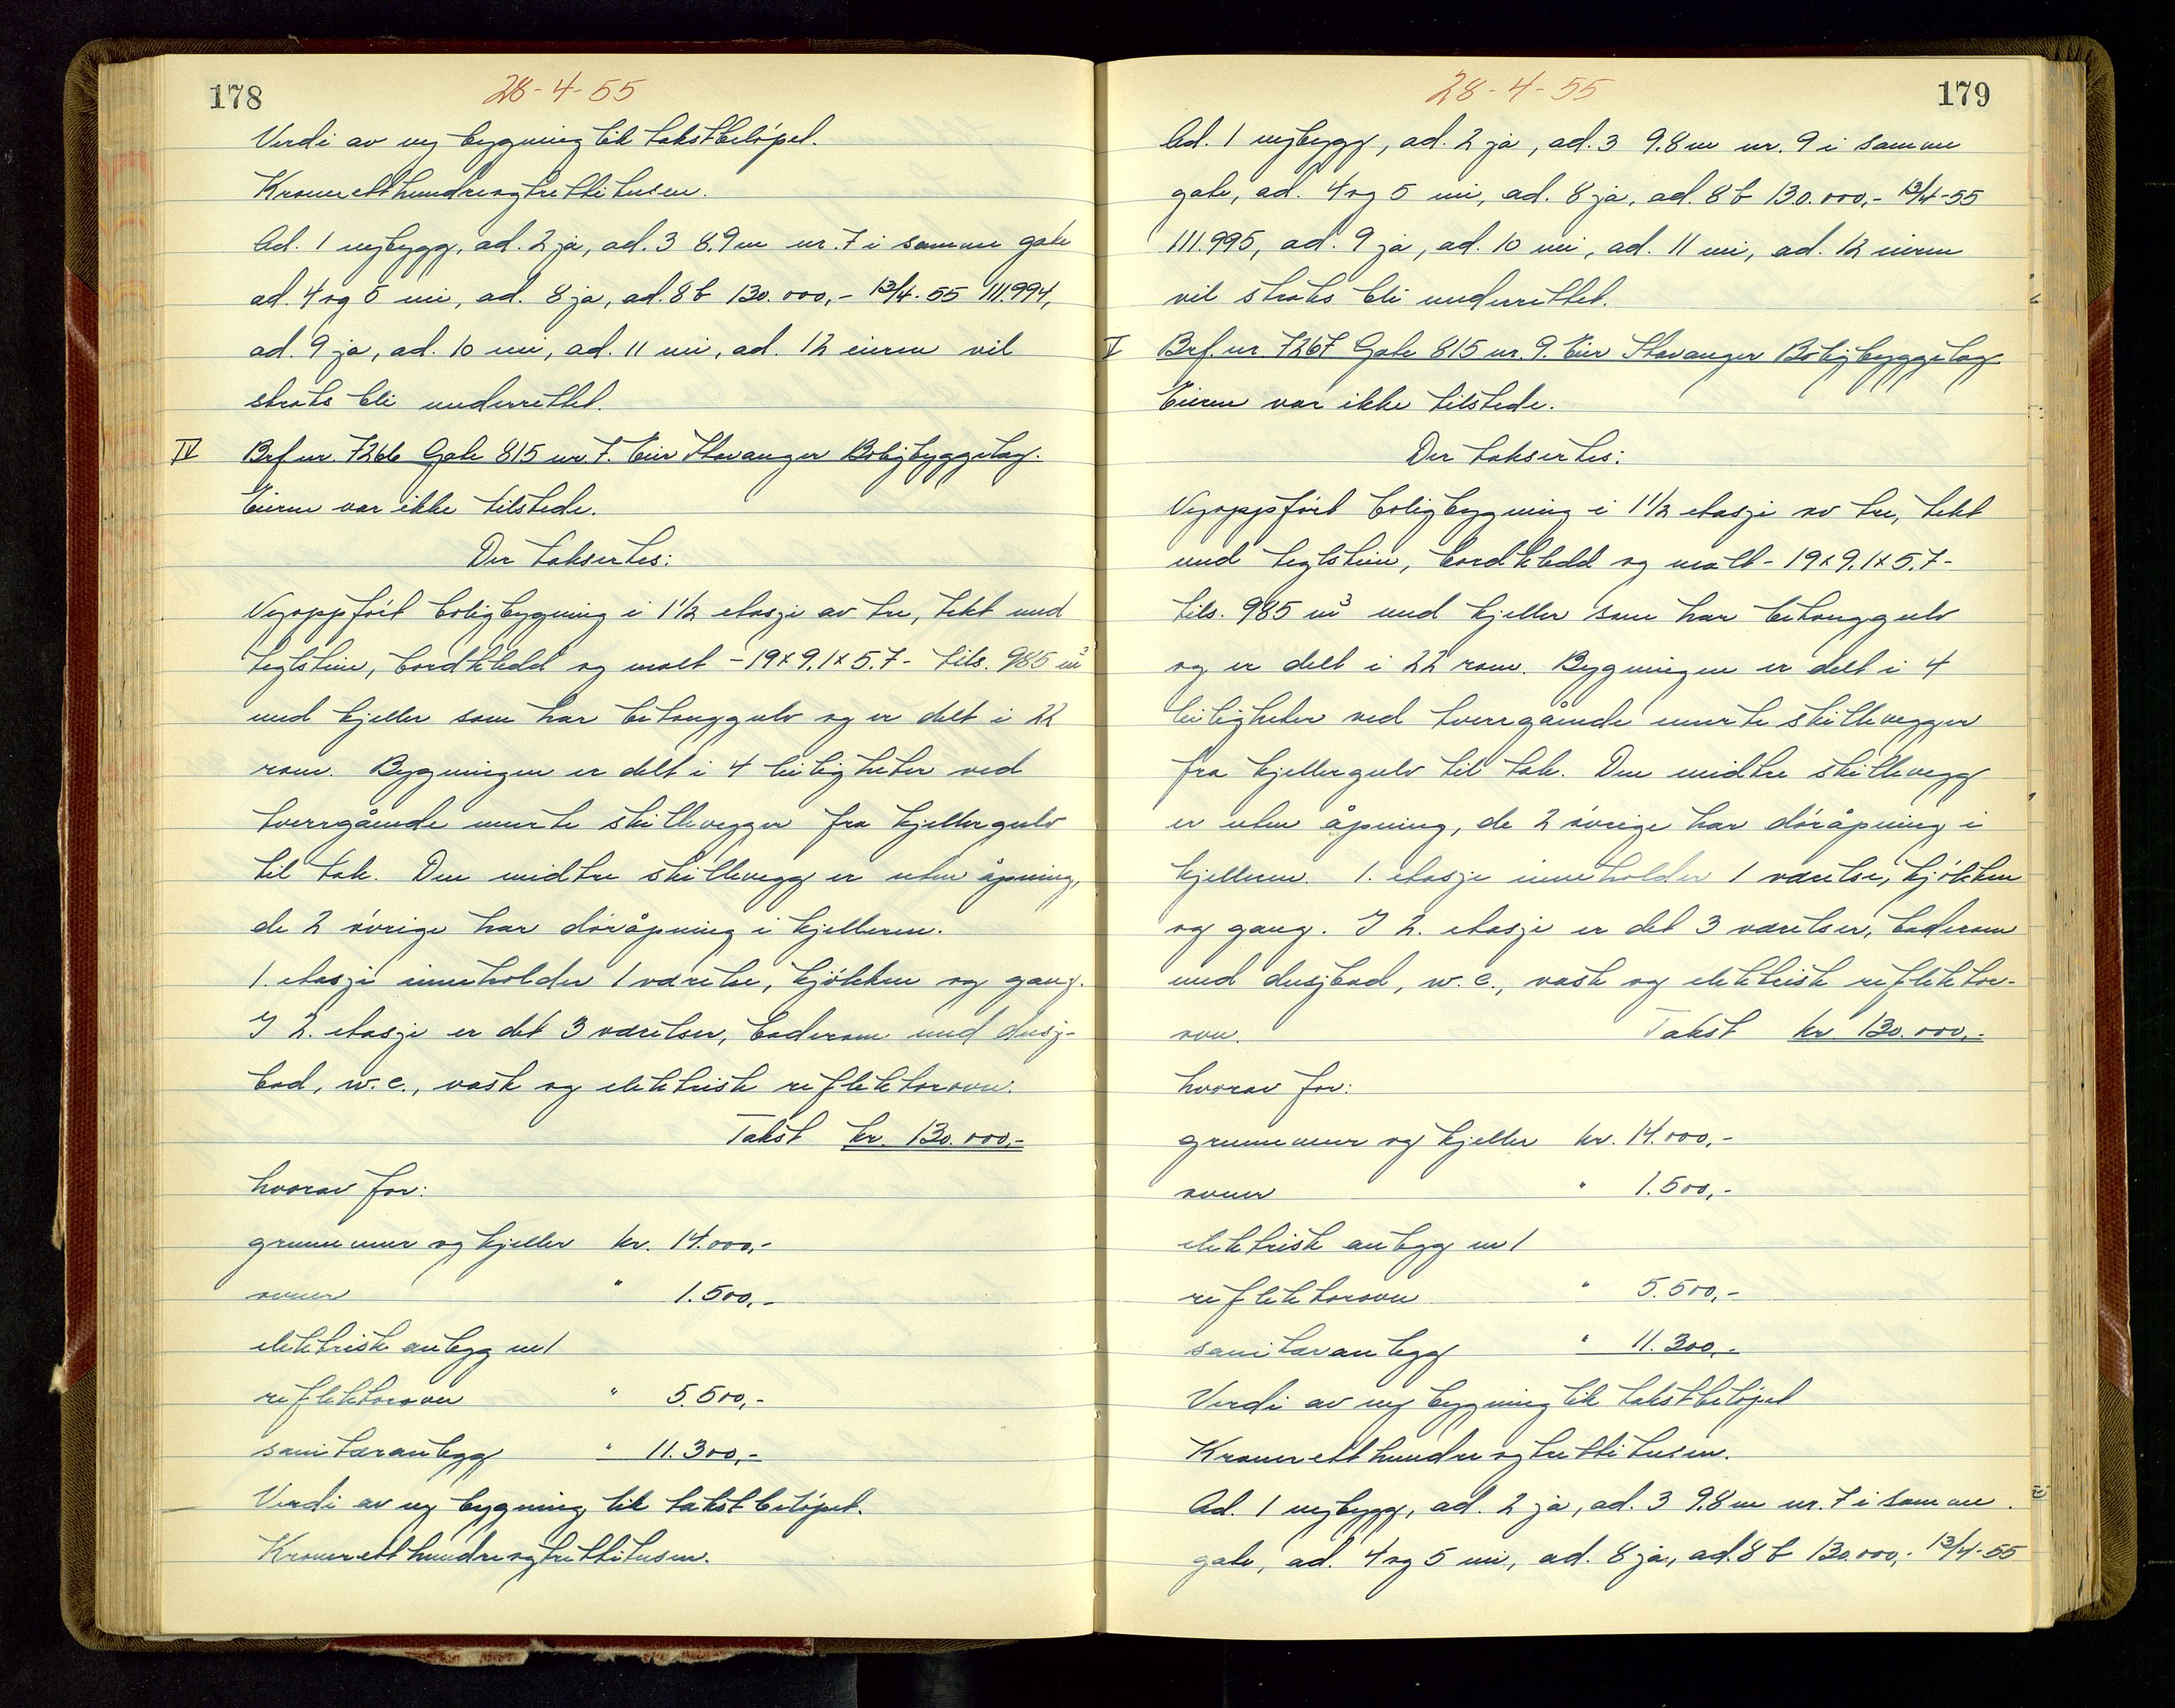 178
28-4-55
Verdi av ny bygning lik takstbeløpet.
Kroneretthundreogtrettitusen.
Ad. 1 nybygg, ad. 2 ja, ad. 3 8.9 m nr. 7 i samme gate
ad. 4 og 5 nei, ad. 8 ja, ad. 8 b 130.000,- 13/4-55 111.994,
ad. 9 ja, ad. 10 nei, ad. 11 nei, ad. 12 eieren vil
straks bli underrettet.
IV Brf.nr. 7266 Gate 815 nr. 7. Eier Stavanger Boligbyggelag.
Eieren var ikke tilstede.
Der taksertes:
Nyoppført boligbygning i 1 1/2 etasje av tre, tekt med
teglstein, bordkledd og malt - 19 x 9.1 x 5.7 - tils. 985 m³
med kjeller som har betonggulv og er delt i 22
rom. Bygningen er delt i 4 leiligheter ved
tverrgående murte skillevegger fra kjellergulv
til tak. Den midtre skillevegg er uten åpning,
de 2 øvrige har døråpning i kjelleren.
1. etasje inneholder 1 værelse, kjøkken og gang.
I 2. etasje er det 3 værelser, baderom med dusj-
bad, w.c., vask og elektrisk reflektorovn.
Takst kr. 130.000,-
hvorav for:
grunnmur og kjeller kr. 14.000,-
ovner " 1.500,-
elektrisk anlegg m/
reflektorovn " 5.500,-
sanitæranlegg " 11.300,-
Verdi av ny bygning lik takstbeløpet.
Kroneretthundreogtrettitusen.
179
28-4-55
Ad. 1 nybygg, ad. 2 ja, ad. 3 9.8 m nr. 9 i samme
gate, ad. 4 og 5 nei, ad. 8 ja, ad. 8 b 130.000,- 13/4-55
111.995, ad. 9 ja, ad. 10 nei, ad. 11 nei, ad. 12 eieren
vil straks bli underrettet.
V Brf.nr 7267 Gate 815 nr. 9. Eier Stavanger Boligbyggelag
Eieren var ikke tilstede.
Der taksertes:
Nyoppført boligbygning i 1 1/2 etasje av tre, tekt
med teglstein, bordkledd og malt - 19 x 9.1 x 5.7 -
tils. 985 m³ med kjeller som har betonggulv
og er delt i 22 rom. Bygningen er delt i 4
leiligheter ved tverrgående murte skillevegger
fra kjellergulv til tak. Den midtre skillevegg
er uten åpning, de 2 øvrige har døråpning i
kjelleren. 1. etasje inneholder 1 værelse, kjøkken
og gang. I 2. etasje er det 3 værelser, baderom
med dusjbad, w.c., vask og elektrisk reflektor-
ovn. Takst kr. 130.000,-
hvorav for:
grunnmur og kjeller kr. 14.000,-
ovner " 1.500,-
elektrisk anlegg m/
reflektorovn " 5.500,-
sanitæranlegg " 11.300,-
Verdi av ny bygning lik takstbeløpet
Kroneretthundreogtrettitusen.
Ad. 1 nybygg, ad. 2 ja, ad. 3 9.8 m nr. 7 i samme
gate, ad. 4 og 5 nei, ad. 8 ja, ad. 8 b 130.000,- 13/4-55